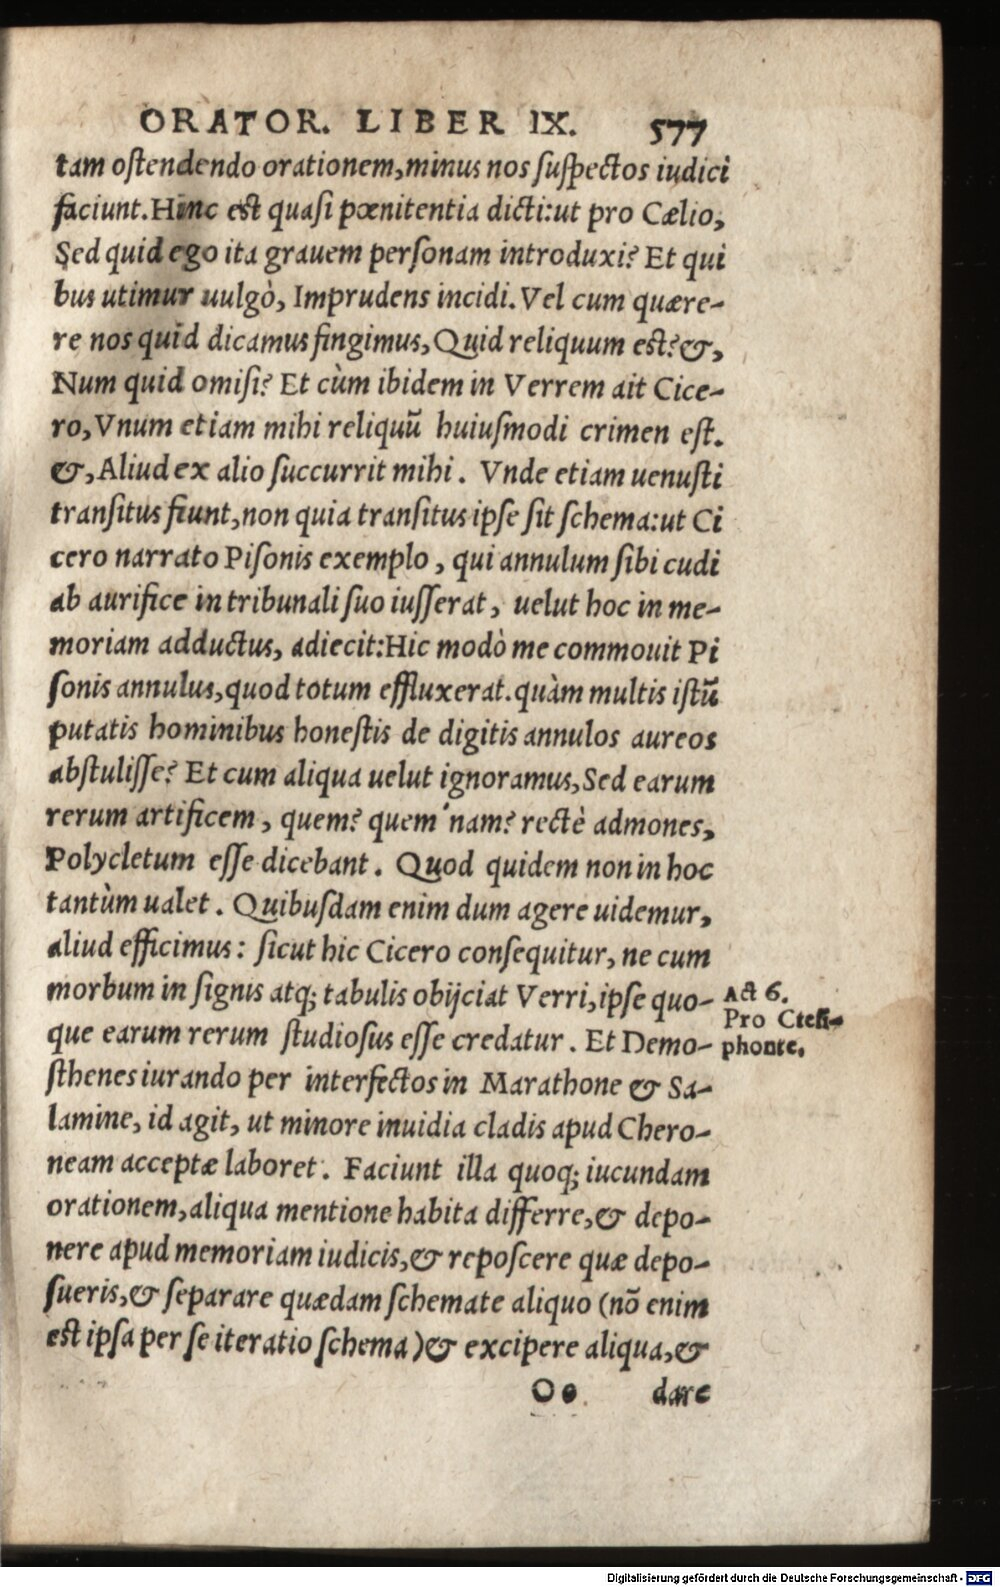 ORATOR. LIBER IX. 577
tam ostendendo orationem,minus nos suspectos iudici
faciunt.Hinc est quasi pœnitentia dicti:ut pro Cælio,
Sed quid ego ita grauem personam introduxi? Et qui
bus utimur uulgò, Imprudens incidi. Vel cum quære-
re nos quid dicamus fingimus, Quid reliquum est?&,
Num quid omisi? Et cùm ibidem in Verrem ait Cice-
ro, Vnum etiam mihi reliquū huiusmodi crimen est.
&, Aliud ex alio succurrit mihi. Vnde etiam uenusti
transitus fiunt,non quia transitus ipse sit schema:ut Ci
cero narrato Pisonis exemplo, qui annulum sibi cudi
ab aurifice in tribunali suo iusserat, uelut hoc in me-
moriam adductus, adiecit:Hic modò me commouit Pi
sonis annulus,quod totum effluxerat.quàm multis istū
putatis hominibus honestis de digitis annulos aureos
abstulisse? Et cum aliqua uelut ignoramus, Sed earum
rerum artificem, quem? quem'nam? rectè admones,
Polycletum esse dicebant. Quod quidem non in hoc
tantùm ualet. Quibusdam enim dum agere uidemur,
aliud efficimus: sicut hic Cicero consequitur, ne cum
morbum in signis atq; tabulis obijciat Verri, ipse quo-
que earum rerum studiosus esse credatur. Et Demo-
sthenes iurando per interfectos in Marathone & Sa-
lamine, id agit, ut minore inuidia cladis apud Chero-
neam acceptæ laboret. Faciunt illa quoq; iucundam
orationem,aliqua mentione habita differre,& depo-
nere apud memoriam iudicis,& reposcere quæ depo-
sueris,& separare quædam schemate aliquo (nō enim
est ipsa per se iteratio schema)& excipere aliqua,&
Oo dare
Act 6.
Pro Ctesi-
phonte.
Digitalisierung gefördert durch die Deutsche Forschungsgemeinschaft - DFG